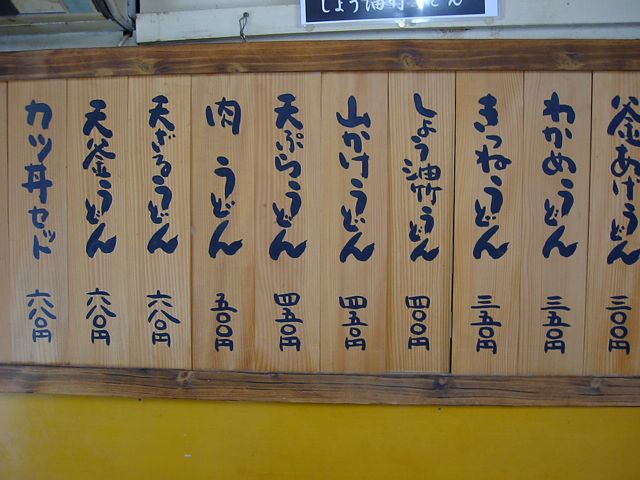 釜あげうどん 三〇〇円
わかめうどん 三五〇円
きつねうどん 三五〇円
しょう油うどん 四〇〇円
山かけうどん 四五〇円
天ぷらうどん 四五〇円
肉うどん 五〇〇円
天ざるうどん 六八〇円
天釜うどん 六八〇円
カツ丼セット 六八〇円